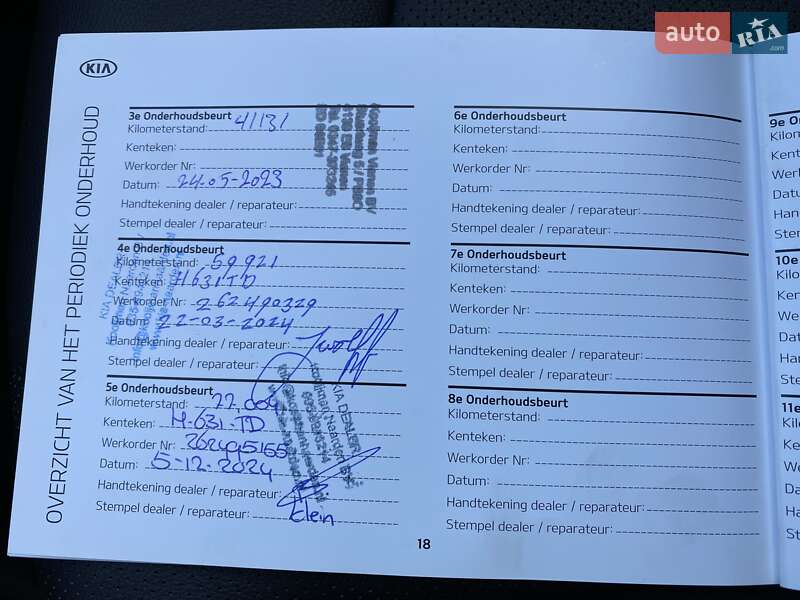 auto RIA.com
KIA
OVERZICHT VAN HET PERIODIEK ONDERHOUD
3e Onderhoudsbeurt
Kilometerstand: 41131
Kenteken:
Werkorder Nr:
Datum: 24-05-2023
Handtekening dealer / reparateur:
Stempel dealer / reparateur:
Kooijman Vianen BV
4e Onderhoudsbeurt
Kilometerstand: 59921
Kenteken: H631TD
Werkorder Nr: 262490329
Datum: 22-03-2024
Handtekening dealer / reparateur:
Stempel dealer / reparateur:
KIA DEALER
5e Onderhoudsbeurt
Kilometerstand: 77.004
Kenteken: H-631-TD
Werkorder Nr: 262495155
Datum: 5-12-2024
Handtekening dealer / reparateur:
Stempel dealer / reparateur: Elein
KIA DEALER
Kooijman Naarden B.V.
6e Onderhoudsbeurt
Kilometerstand:
Kenteken:
Werkorder Nr:
Datum:
Handtekening dealer / reparateur:
Stempel dealer / reparateur:
7e Onderhoudsbeurt
Kilometerstand:
Kenteken:
Werkorder Nr:
Datum:
Handtekening dealer / reparateur:
Stempel dealer / reparateur:
8e Onderhoudsbeurt
Kilometerstand:
Kenteken:
Werkorder Nr:
Datum:
Handtekening dealer / reparateur:
Stempel dealer / reparateur:
18
9e On
Kilom
Kente
Werk
Datu
Hand
Stem
10e
Kilo
Ken
We
Da
Ha
St
11e
Kil
Ke
W
D
H
S